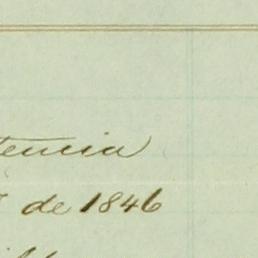 tencia
de 1846